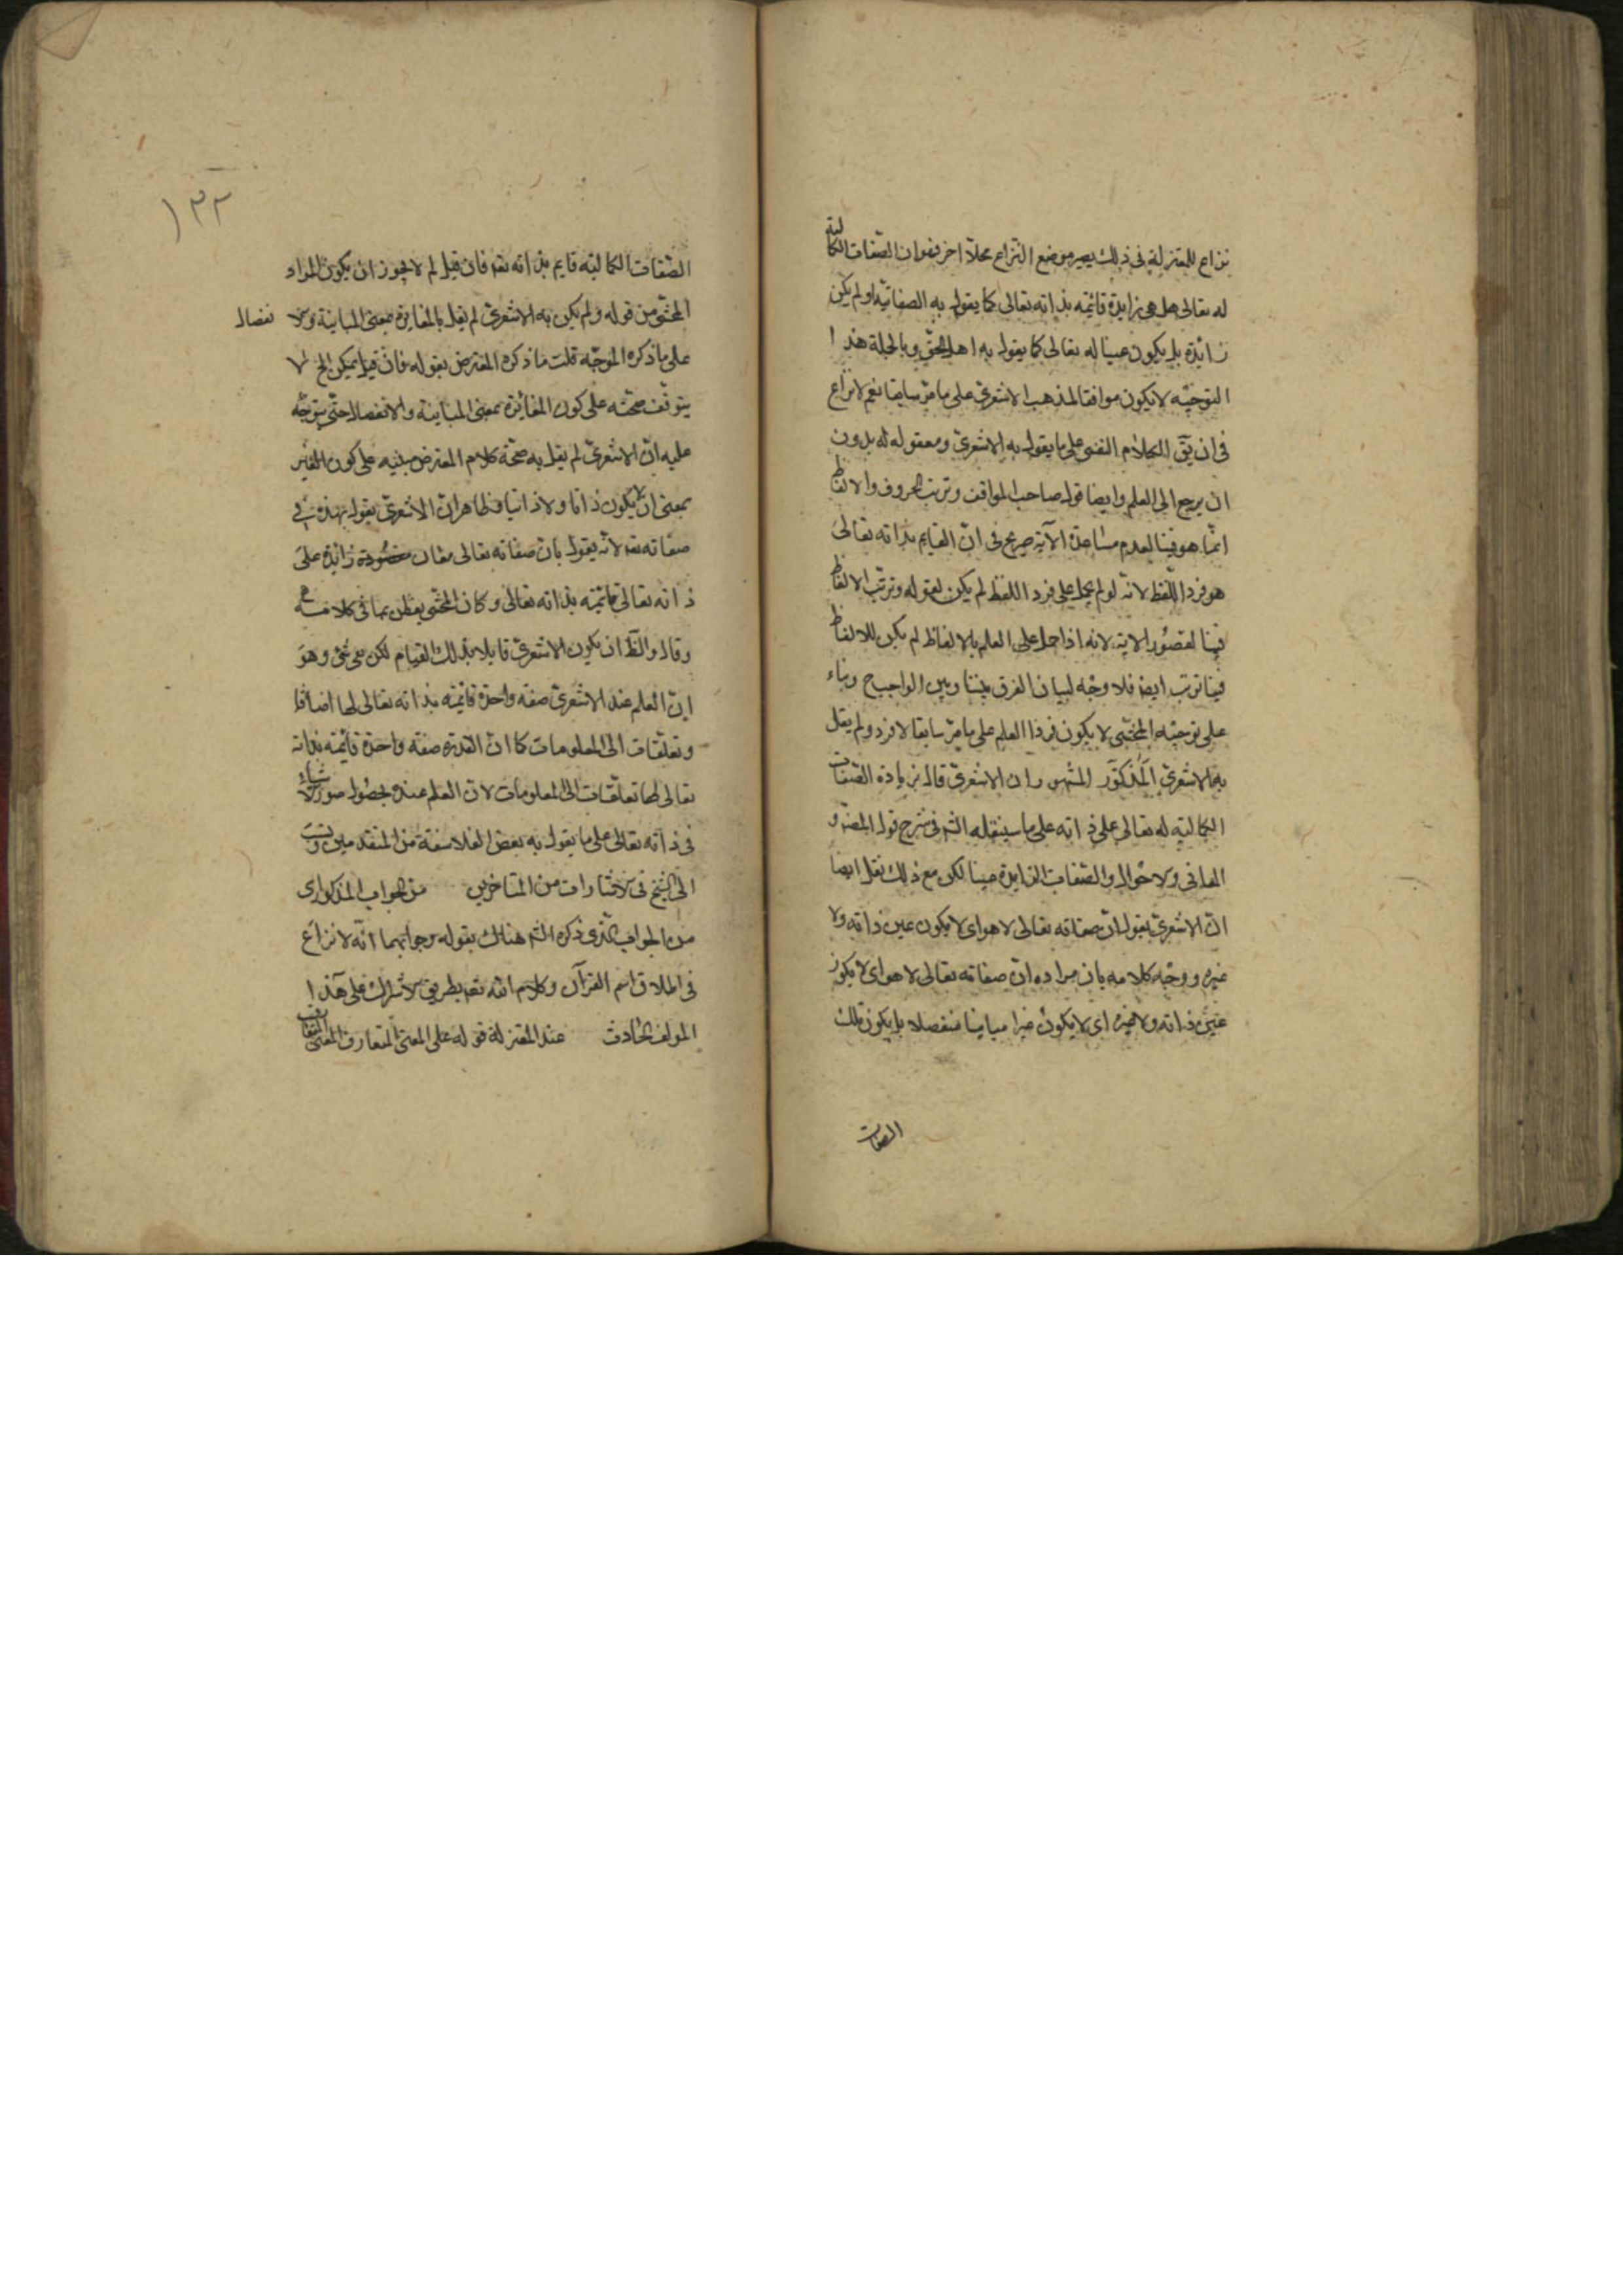 نزاع للمعتزلة فى ذلك يصير موضع النزاع محلا اخر فهو ان الصفات الكمالية
له تعالى هل هى زايدة قائمة بذاته تعالى كما يقول به الصفاتية او لم يكن
زائدة بل يكون عينا له تعالى كما يقول به اهل الحق وبالجملة هذا
التوجيه لا يكون موافقا لمذهب الاشعرى على ما مر سابقا نعم لا نزاع
فى ان يق الكلام النفسى على ما يقول به الاشعرى ومعقوله له بدون
ان يرجع الى العلم وايضا قول صاحب المواقف وترتب الحروف والالفاظ
انما هو فينا لعدم مساعدة الآية صريح فى ان القايم بذاته تعالى
هو فرد اللفظ لانه لو لم يحمل على فرد اللفظ لم يكن لقوله وترتب الالفاظ
فينا لقصور الاية لانه اذا حمل على العلم بالالفاظ لم يكن للالفاظ
فينا ترتب ايضا فلا وجه لبيان الفرق بيننا وبين الواجب ح وبناء
على توجيه المحشى لا يكون فردا العلم على ما مر سابقا لا فرد ولم يقل
به الاشعرى المذكور المشهور ان الاشعرى قال بزيادة الصفات
الكمالية له تعالى على ذاته على ما سينقله الشم فى شرح قول المص و
المعانى والاحوال والصفات الزايدة عينا لكن مع ذلك نقل ايضا
ان الاشعرى يقول ان صفاته تعالى لا هو اى لا يكون عين ذاته ولا
غيره ووجه كلامه بان مراده ان صفاته تعالى لا هو اى لا يكون
عين ذاته ولا غيره اى لا يكون غيرا مباينا منفصلا بل يكون تلك
الصفات
١٣٢
الصفات الكمالية قايم بذاته تعه فان قيل لم لا يجوز ان يكون المراد
المحشى من قوله ولم يكن به الاشعرى لم يقل بالمغايرة بمعنى المباينة والا نفصال
على ما ذكره الموجه قلت ما ذكره المعترض بقوله فان قيل يمكن الخ لا
يتوقف صحته على كون المغائرة بمعنى المباينة والانفصال حتى يتوجه
عليه ان الاشعرى لم يقل به صحة كلام المعترض مبنيه على كون الغير
بمعنى ان لا يكون ذاتا ولا ذاتيا وظاهر ان الاشعرى يقول بهذه فى
صفاته تعه لانه يقول بان صفاته تعالى معان مخصوصة زائدة على
ذاته تعالى قائمة بذاته تعالى وكان المحشى يفطن بما فى كلامه
وقال والظ ان يكون الاشعرى قايلا بذلك القيام لكن مع شئ وهو
ان العلم عند الاشعرى صفة واحدة قائمة بذاته تعالى لها اضافات
وتعلقات الى المعلومات كما ان القدرة صفة واحدة قائمة بذاته
تعالى لها تعلقات الى المعلومات لان العلم عنده بحصول صور الاشياء
فى ذاته تعالى على ما يقول به بعض الفلاسفة من المتقدمين ونسب
الى الشيخ فى الاشارات من المتاخرين من الجواب المذكور اى
من الجواب الذى ذكره الشم هنالك بقوله وجوابهما انه لا نزاع
فى اطلاق اسم القرآن وكلام الله تعه بطريق الاشتراك على هذا
المولف الحادث عند المعتزلة قوله على المعنى المتعارف المعنى المتعارف